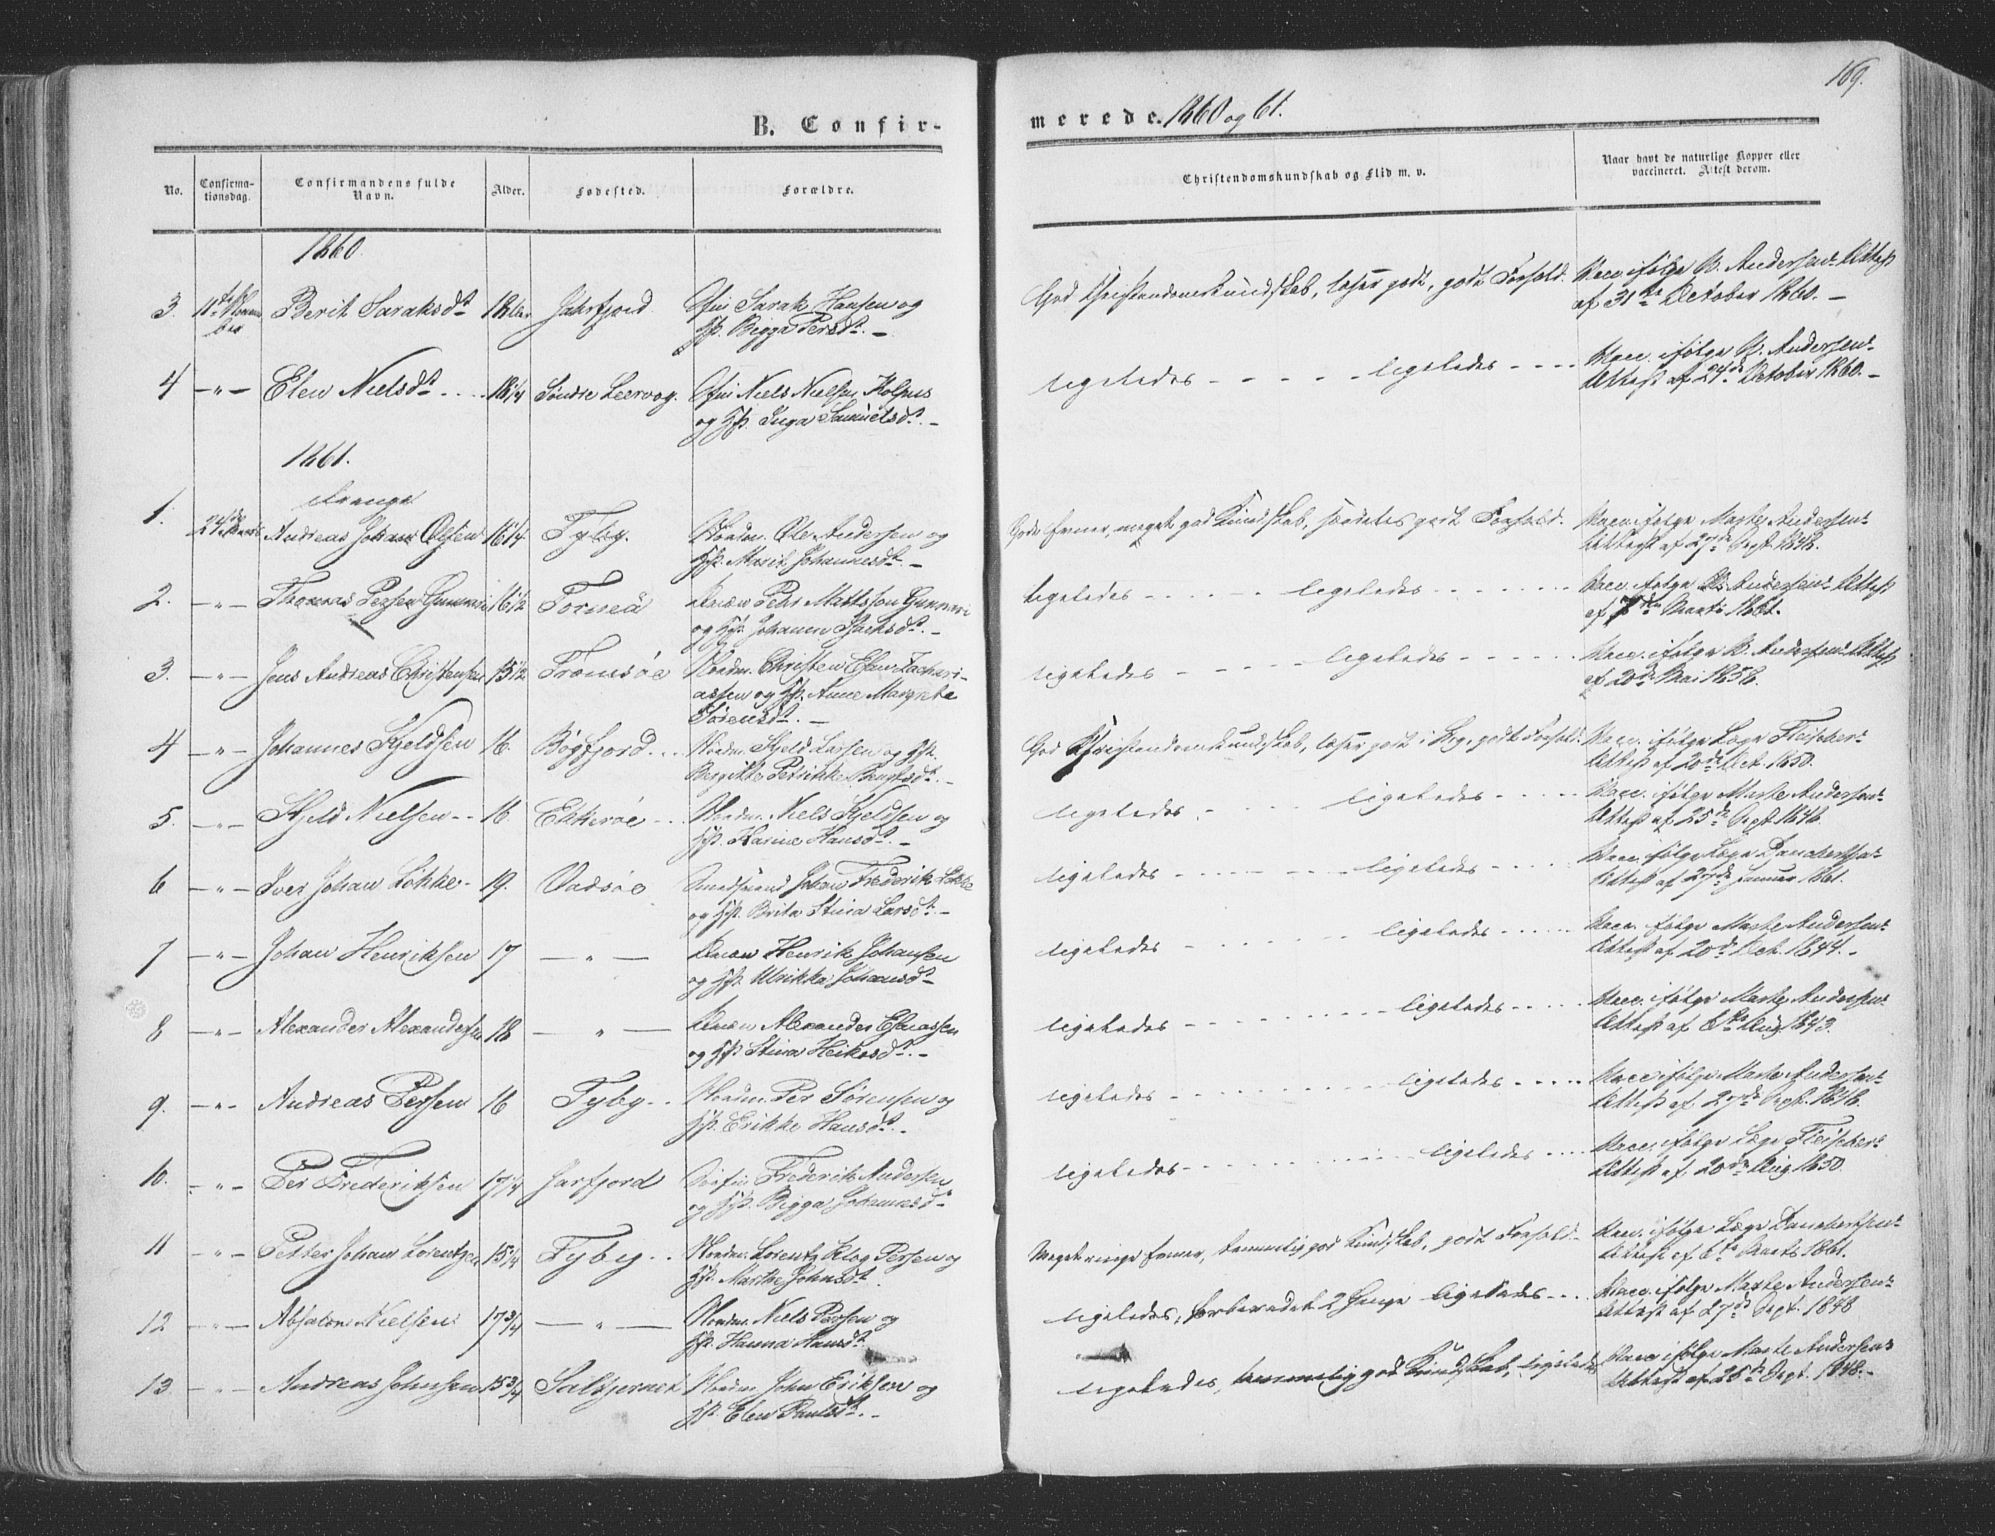 169.
B. Confir-
merede. 1860 og 61.
No.
Confirma-
tionsdag.
Confirmandens fulde
Navn.
Alder.
Fødested.
Forældre.
Christendomskundskab og Flid m. v.
Naar havt de naturlige Kopper eller
vaccineret. Attest derom.
1860.
3. 11te Berit Saraksdt Jahrfjord Sarak Hansen og
Bigga Persdt. –
God Christendomskundskab, læser godt, godt Forhold.
Vacc. ifølge B. Andersens Attest
af 31te October 1860. –
4 –„– Elen Nielsdt 18 1/4 Søndre Leervog. Niels Nielsen
og Inga Samuelsdt. –
ligeledes – – – – ligeledes – – –
Vacc. ifølge B. Andersens
Attest af 24de October 1860. –
1861.
Drenge
1. 24de Andreas Johan Olsen 16 1/4 Fyby. Nordm. Ole Andersen og
Marit Johannesdt. –
meget god Kundskab, særdeles godt Forhold.
Vacc. ifølge Andersens
Attest af 27de Sept. 1848.
2. –„– Thomas Persen 16 1/2 Torneå Qvæn Petter Mattsson
og Johanna
ligeledes – – – – ligeledes – – – –
Vacc. ifølge B. Andersens Attest
af 7de Marts 1861.
3. –„– Jens Andreas Christensen 15 1/2 Tromsöe Nordm. Christen Zachari-
assen og Anne Margrete
Sørensdt. –
ligeledes – – – – ligeledes – – – –
Vacc. ifølge B. Andersens Attest
af 20de Mai 1858.
4 –„– Johannes Kjeldsen 16. Bögfjord Nordm. Kjeld Larsen og
Petrikke
God Christendomskundskab, læser godt i Bog, godt Forhold.
Vacc. ifølge Læge Fleischers
Attest af 20de Oct. 1850.
5. –„– Kjeld Nielsen 16. Ekkeröe Nordm. Niels Kjeldsen og
Karine Hansdt. –
ligeledes – – – – ligeledes – – – –
Vacc. ifølge Andersens
Attest af 25de Sept. 1846.
6 –„– Iver Johan Lökke 19. Vadsöe Johan Frederik Lökke
og Brita Stina Larsdt. –
ligeledes – – – – ligeledes – – – –
Vacc. ifølge Læge Danchertsens
Attest af 27de Januar 1861.
7 –„– Johan Henriksen 17 –„– Qvæn Henrik Johansen
og Ulrikka Johansdt –
ligeledes – – – – ligeledes – – – –
Vacc. ifølge Andersens
Attest af 20de Oct. 1844. –
8 –„– Alexander Alexandersen 18 –„– Qvæn Alexander
og Stina Heikesdt. –
ligeledes – – – – ligeledes – – – –
Vacc. ifølge Andersens
Attest af 6te Aug 1843.
9. –„– Andreas Persen 16 Fyby Nordm. Per Sörensen og
Erikke Hansdt. –
ligeledes – – – – ligeledes – – – –
Vacc. ifølge Andersens
Attest af 27de Sept. 1848.
10. –„– Per Frederiksen 17 1/4 Jarfjord Frederik Andersen
og Bigga Johannesdt –
ligeledes – – – – ligeledes – – – –
Vacc. ifølge Læge Fleischers
Attest af 20de Aug 1850.
11 –„– Petter Johan Lorentzen Fyby Nordm. Lorentz Klog Persen og
Marthe Johnsdt.
Meget ringe Evner, temmelig god Kundskab, godt Forhold –
Vacc. ifølge Læge Danchertsens
Attest af 6te Marts 1861.
12 –„– Absalon Nielsen 17 3/4 –„– Nordm. Niels Persen og
Hanna Hansdt
ligeledes, forberedet 2 Gange ligeledes – – –
Vacc. ifølge Andersens
Attest af 27de Sept. 1848
13 –„– Andreas Johnsen 15 3/4 Nordm. John Eriksen og
Elen Paulsdt. –
ligeledes, temmelig god Kundskab, ligeledes
Vacc ifølge Andersens
Attest af 25de Sept. 1848. –